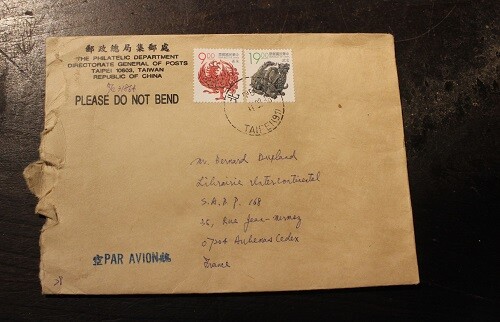 郵政總局集郵處
THE PHILATELIC DEPARTMENT
DIRECTORATE GENERAL OF POSTS
TAIPEI 10603, TAIWAN
REPUBLIC OF CHINA
PLEASE DO NOT BEND
9.00
19.00
中華民國郵票
中華民國郵票
TAIPEI
Mr. Bernard
Librairie Intercontinental
S.A.R.P. 168
25, Rue Jean-Mermoz
Aubenas Cedex
France
PAR AVION